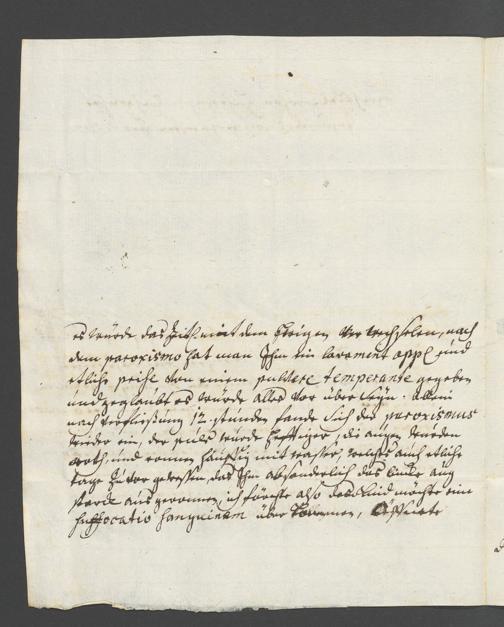 es wurde das Zith. mit dem übrigen verwechslen, nach
dem paroxismo hat man Ihm ein lavement appl und
etliche prise von einem pulvere temperante gegeben
und geglaubt es wurde alles vorüber seÿn. allein
nach verfließung 12 stunden fande sich der paroxismus
wider ein, der puls wurde hefftiger, die augen wurden
roth, und ronnen häuffig mit wasser, welches auch etliche
tage zuvor gewesen, das Ihm absonderlich das linke aug
starck ausgeronnen, ich förchte also das Kind möchte ein
suffocatio sanguinem über kommen,